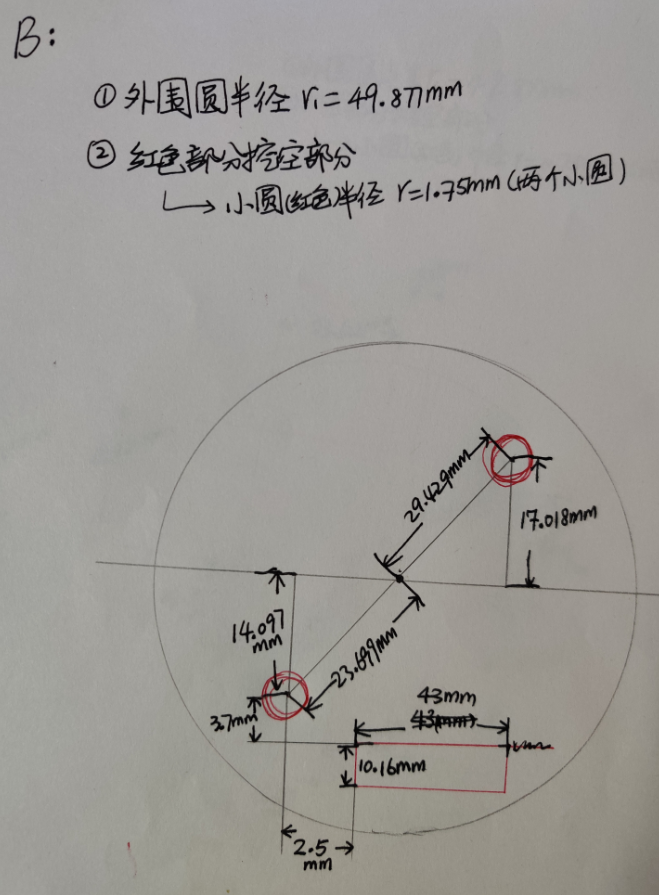 B:
① 外围圆半径 r₁=49.877mm
② 红色部分挖空部分
↳ 小圆(红色)半径 r=1.75mm(两个小圆)
29.429mm
17.018mm
14.097
mm
23.699mm
3.7mm
43mm
10.16mm
2.5
mm